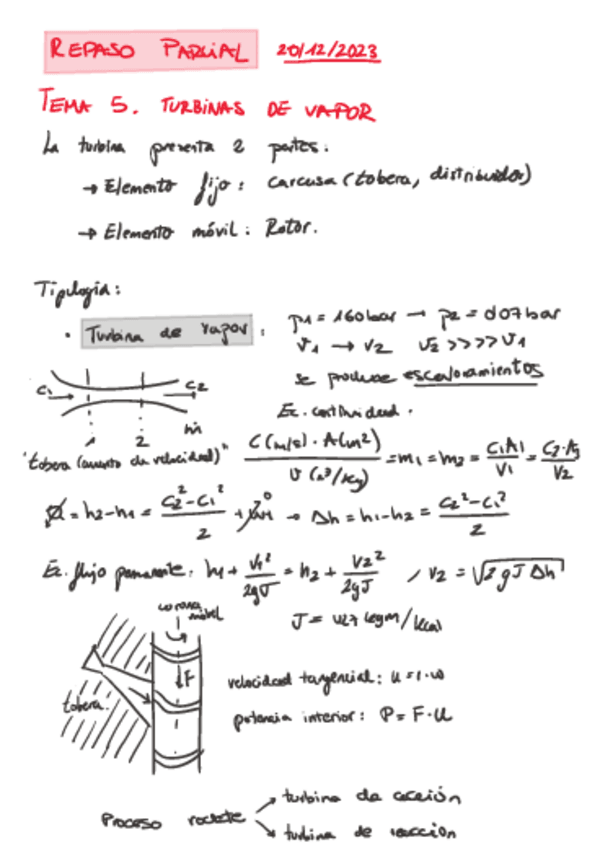 REPASO PARCIAL 20/12/2023
TEMA 5. TURBINAS DE VAPOR
La turbina presenta 2 partes:
→ Elemento fijo: carcasa (tobera, distribuidor)
→ Elemento móvil: Rotor.
Tipología:
• Turbina de vapor: P1 = 160 bar → P2 = 0'07 bar
v1 → v2 v2 >>>> v1
se produce escalonamientos
C1 C2
Ec. continuidad.
1 2 ṁ
"tobera (aumento de velocidad)" C(m/s) · A(m²) / v (m³/kg) = m1 = m2 = C1A1/V1 = C2·A2/V2
Q = h2-h1 = (C2²-C1²)/2 + 0 → Δh = h1-h2 = (C2²-C1²)/2
Ec. flujo permanente: h1 + V1²/2gJ = h2 + V2²/2gJ , V2 = √2gJΔh
J = 427 kgm/kcal
corona móvil
F
tobera.
velocidad tangencial: u = r·ω
potencia interior: P = F·u
Proceso
→ turbina de acción
→ turbina de reacción